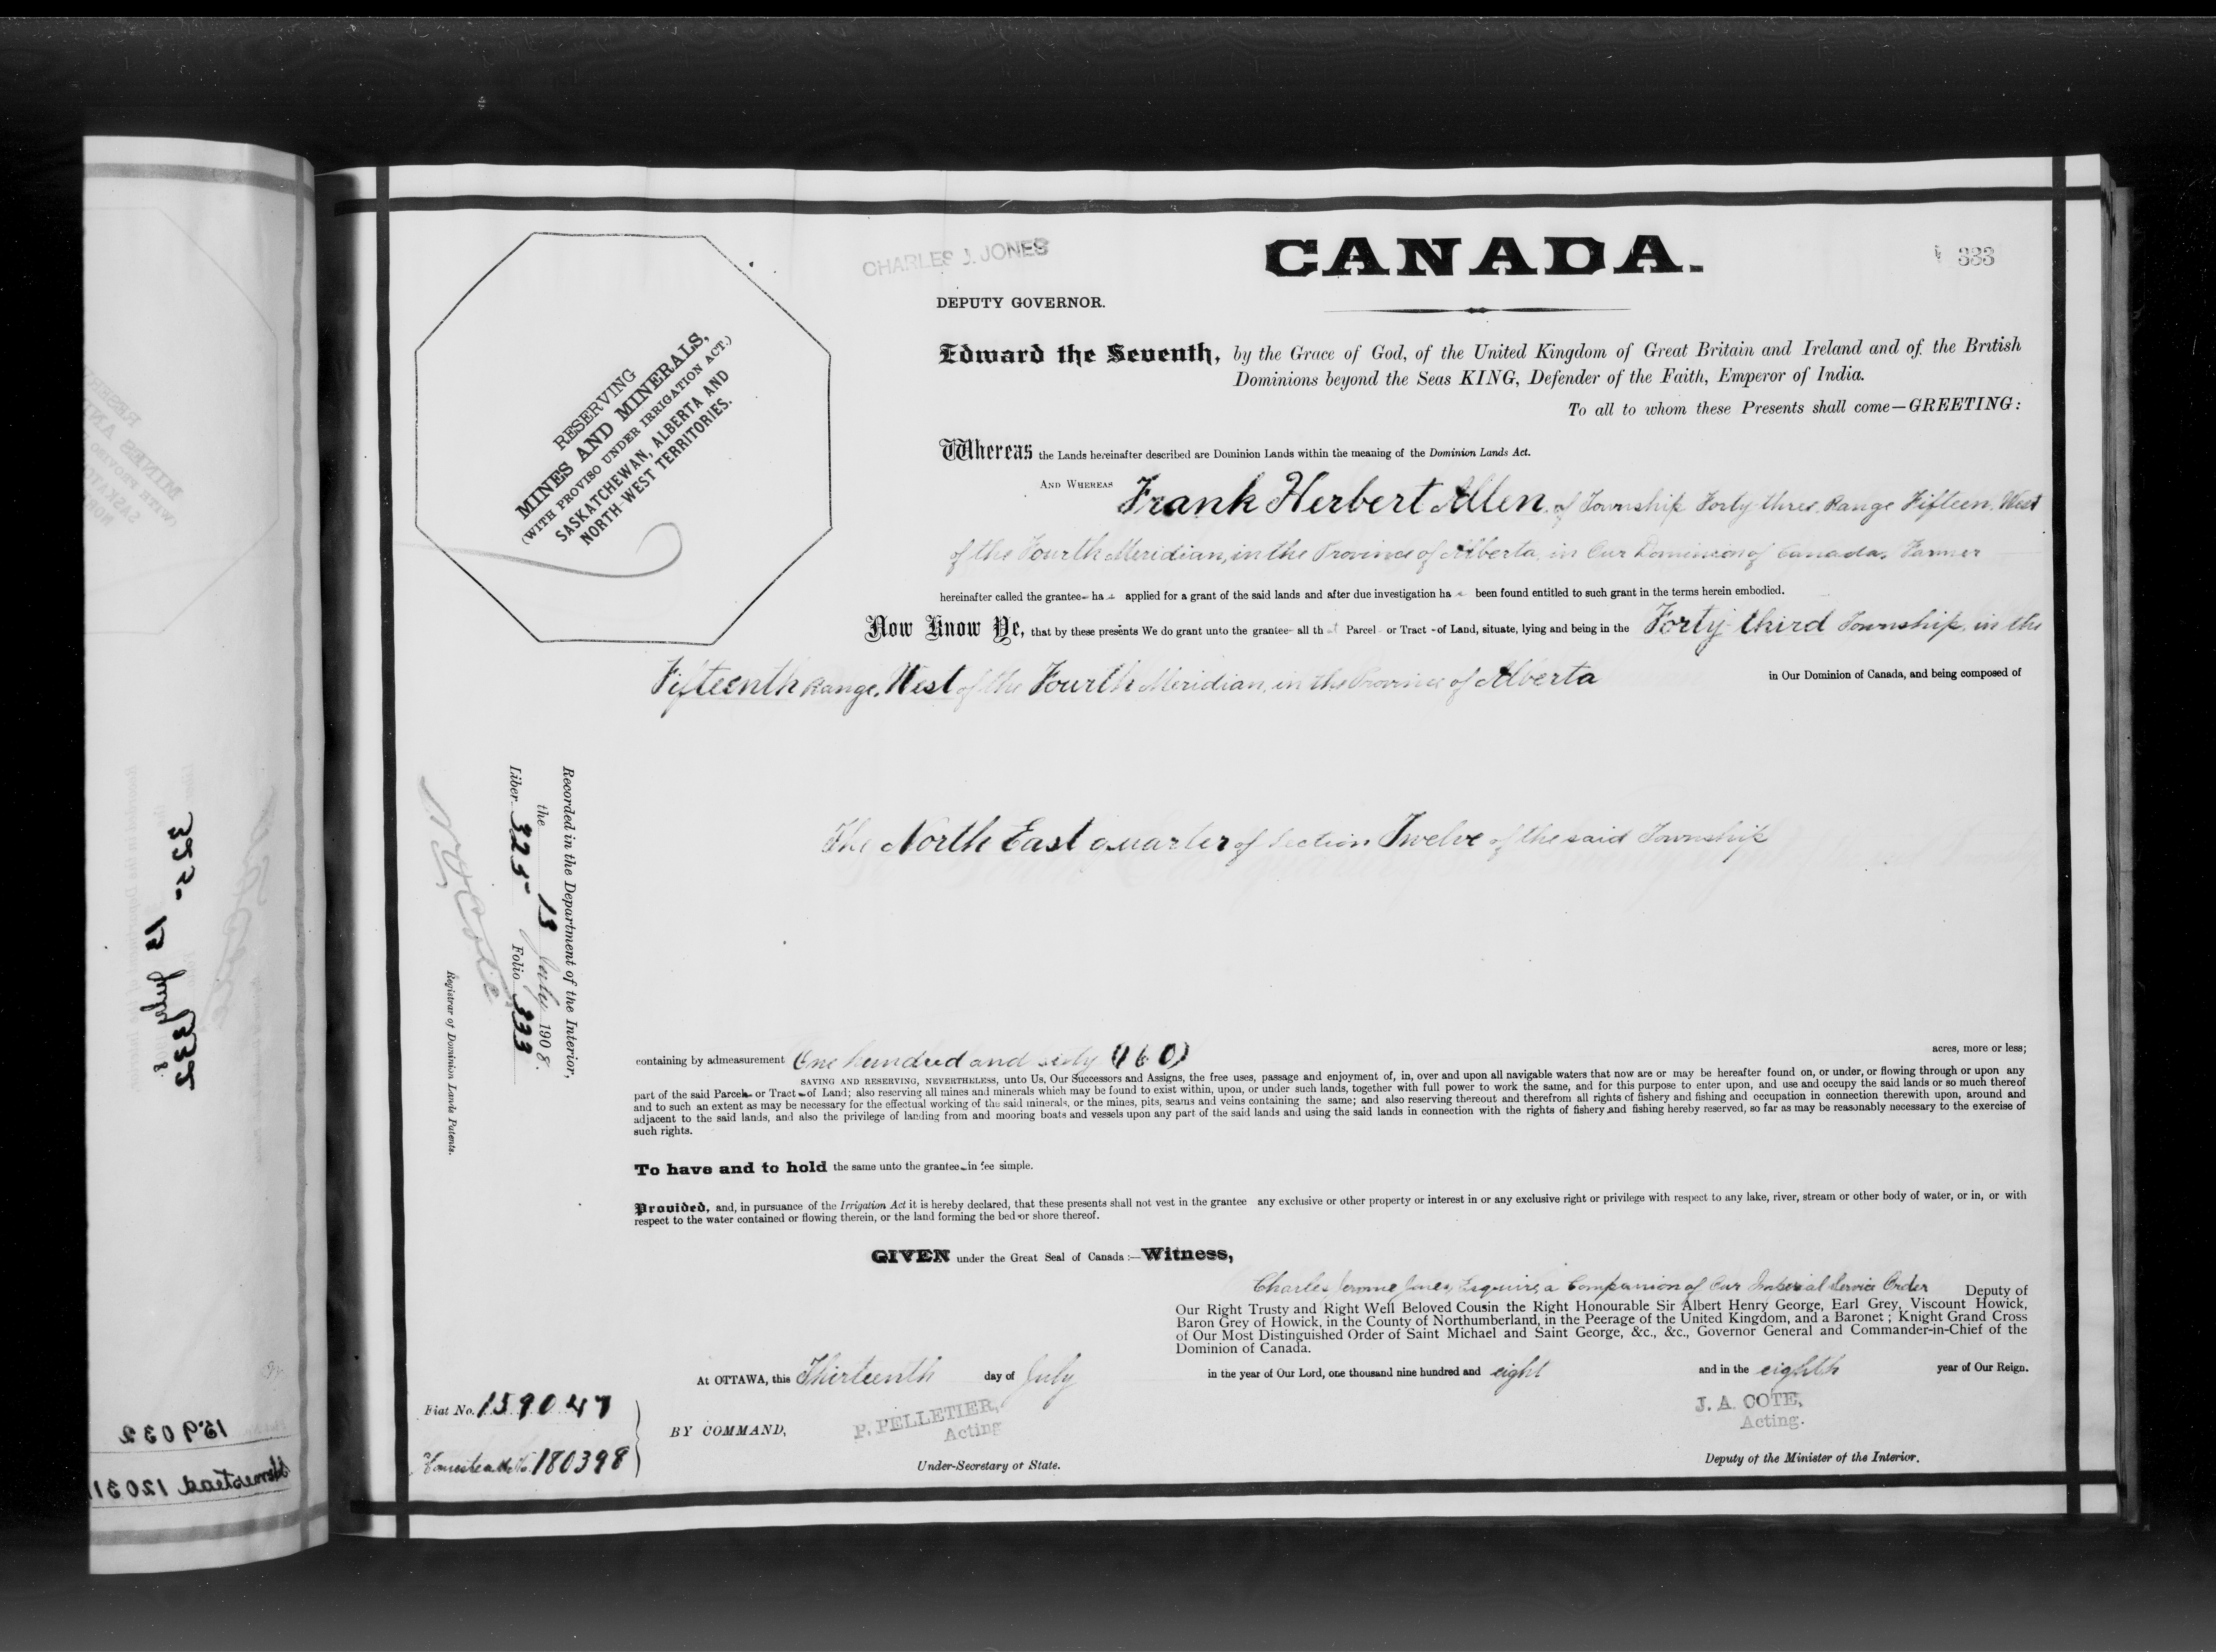 CHARLES J. JONES
CANADA.
333
DEPUTY GOVERNOR.
RESERVING
MINES AND MINERALS,
(WITH PROVISO UNDER IRRIGATION ACT.)
SASKATCHEWAN, ALBERTA AND
NORTH-WEST TERRITORIES.
Edward the Seventh, by the Grace of God, of the United Kingdom of Great Britain and Ireland and of the British
Dominions beyond the Seas KING, Defender of the Faith, Emperor of India.
To all to whom these Presents shall come—GREETING:
Whereas the Lands hereinafter described are Dominion Lands within the meaning of the Dominion Lands Act.
AND WHEREAS Frank Herbert Allen, of Township Forty three, Range Fifteen, West
of the Fourth Meridian, in the Province of Alberta, in Our Dominion of Canada, Farmer
hereinafter called the grantee has applied for a grant of the said lands and after due investigation has been found entitled to such grant in the terms herein embodied.
Now Know Ye, that by these presents We do grant unto the grantee all that Parcel or Tract of Land, situate, lying and being in the Forty-third Township, in the
Fifteenth Range, West of the Fourth Meridian, in the Province of Alberta in Our Dominion of Canada, and being composed of
The North East quarter of Section Twelve of the said Township
Recorded in the Department of the Interior,
the 13 July 1908.
Liber 325 Folio 333
Registrar of Dominion Lands Patents.
containing by admeasurement One hundred and sixty (160) acres, more or less;
SAVING AND RESERVING, NEVERTHELESS, unto Us, Our Successors and Assigns, the free uses, passage and enjoyment of, in, over and upon all navigable waters that now are or may be hereafter found on, or under, or flowing through or upon any
part of the said Parcel or Tract of Land; also reserving all mines and minerals which may be found to exist within, upon, or under such lands, together with full power to work the same, and for this purpose to enter upon, and use and occupy the said lands or so much thereof
and to such an extent as may be necessary for the effectual working of the said minerals, or the mines, pits, seams and veins containing the same; and also reserving thereout and therefrom all rights of fishery and fishing and occupation in connection therewith upon, around and
adjacent to the said lands, and also the privilege of landing from and mooring boats and vessels upon any part of the said lands and using the said lands in connection with the rights of fishery and fishing hereby reserved, so far as may be reasonably necessary to the exercise of
such rights.
To have and to hold the same unto the grantee in fee simple.
Provided, and, in pursuance of the Irrigation Act it is hereby declared, that these presents shall not vest in the grantee any exclusive or other property or interest in or any exclusive right or privilege with respect to any lake, river, stream or other body of water, or in, or with
respect to the water contained or flowing therein, or the land forming the bed or shore thereof.
GIVEN under the Great Seal of Canada:—Witness,
Charles Jerome Jones, Esquire, a Companion of Our Imperial Service Order Deputy of
Our Right Trusty and Right Well Beloved Cousin the Right Honourable Sir Albert Henry George, Earl Grey, Viscount Howick,
Baron Grey of Howick, in the County of Northumberland, in the Peerage of the United Kingdom, and a Baronet; Knight Grand Cross
of Our Most Distinguished Order of Saint Michael and Saint George, &c., &c., Governor General and Commander-in-Chief of the
Dominion of Canada.
At OTTAWA, this Thirteenth day of July in the year of Our Lord, one thousand nine hundred and eight and in the eighth year of Our Reign.
Fiat No. 159047
Homestead No. 180398
BY COMMAND,
P. PELLETIER,
Acting
Under-Secretary of State.
J. A. COTE,
Acting.
Deputy of the Minister of the Interior.
325 13 July 332
159032
Homestead 12031